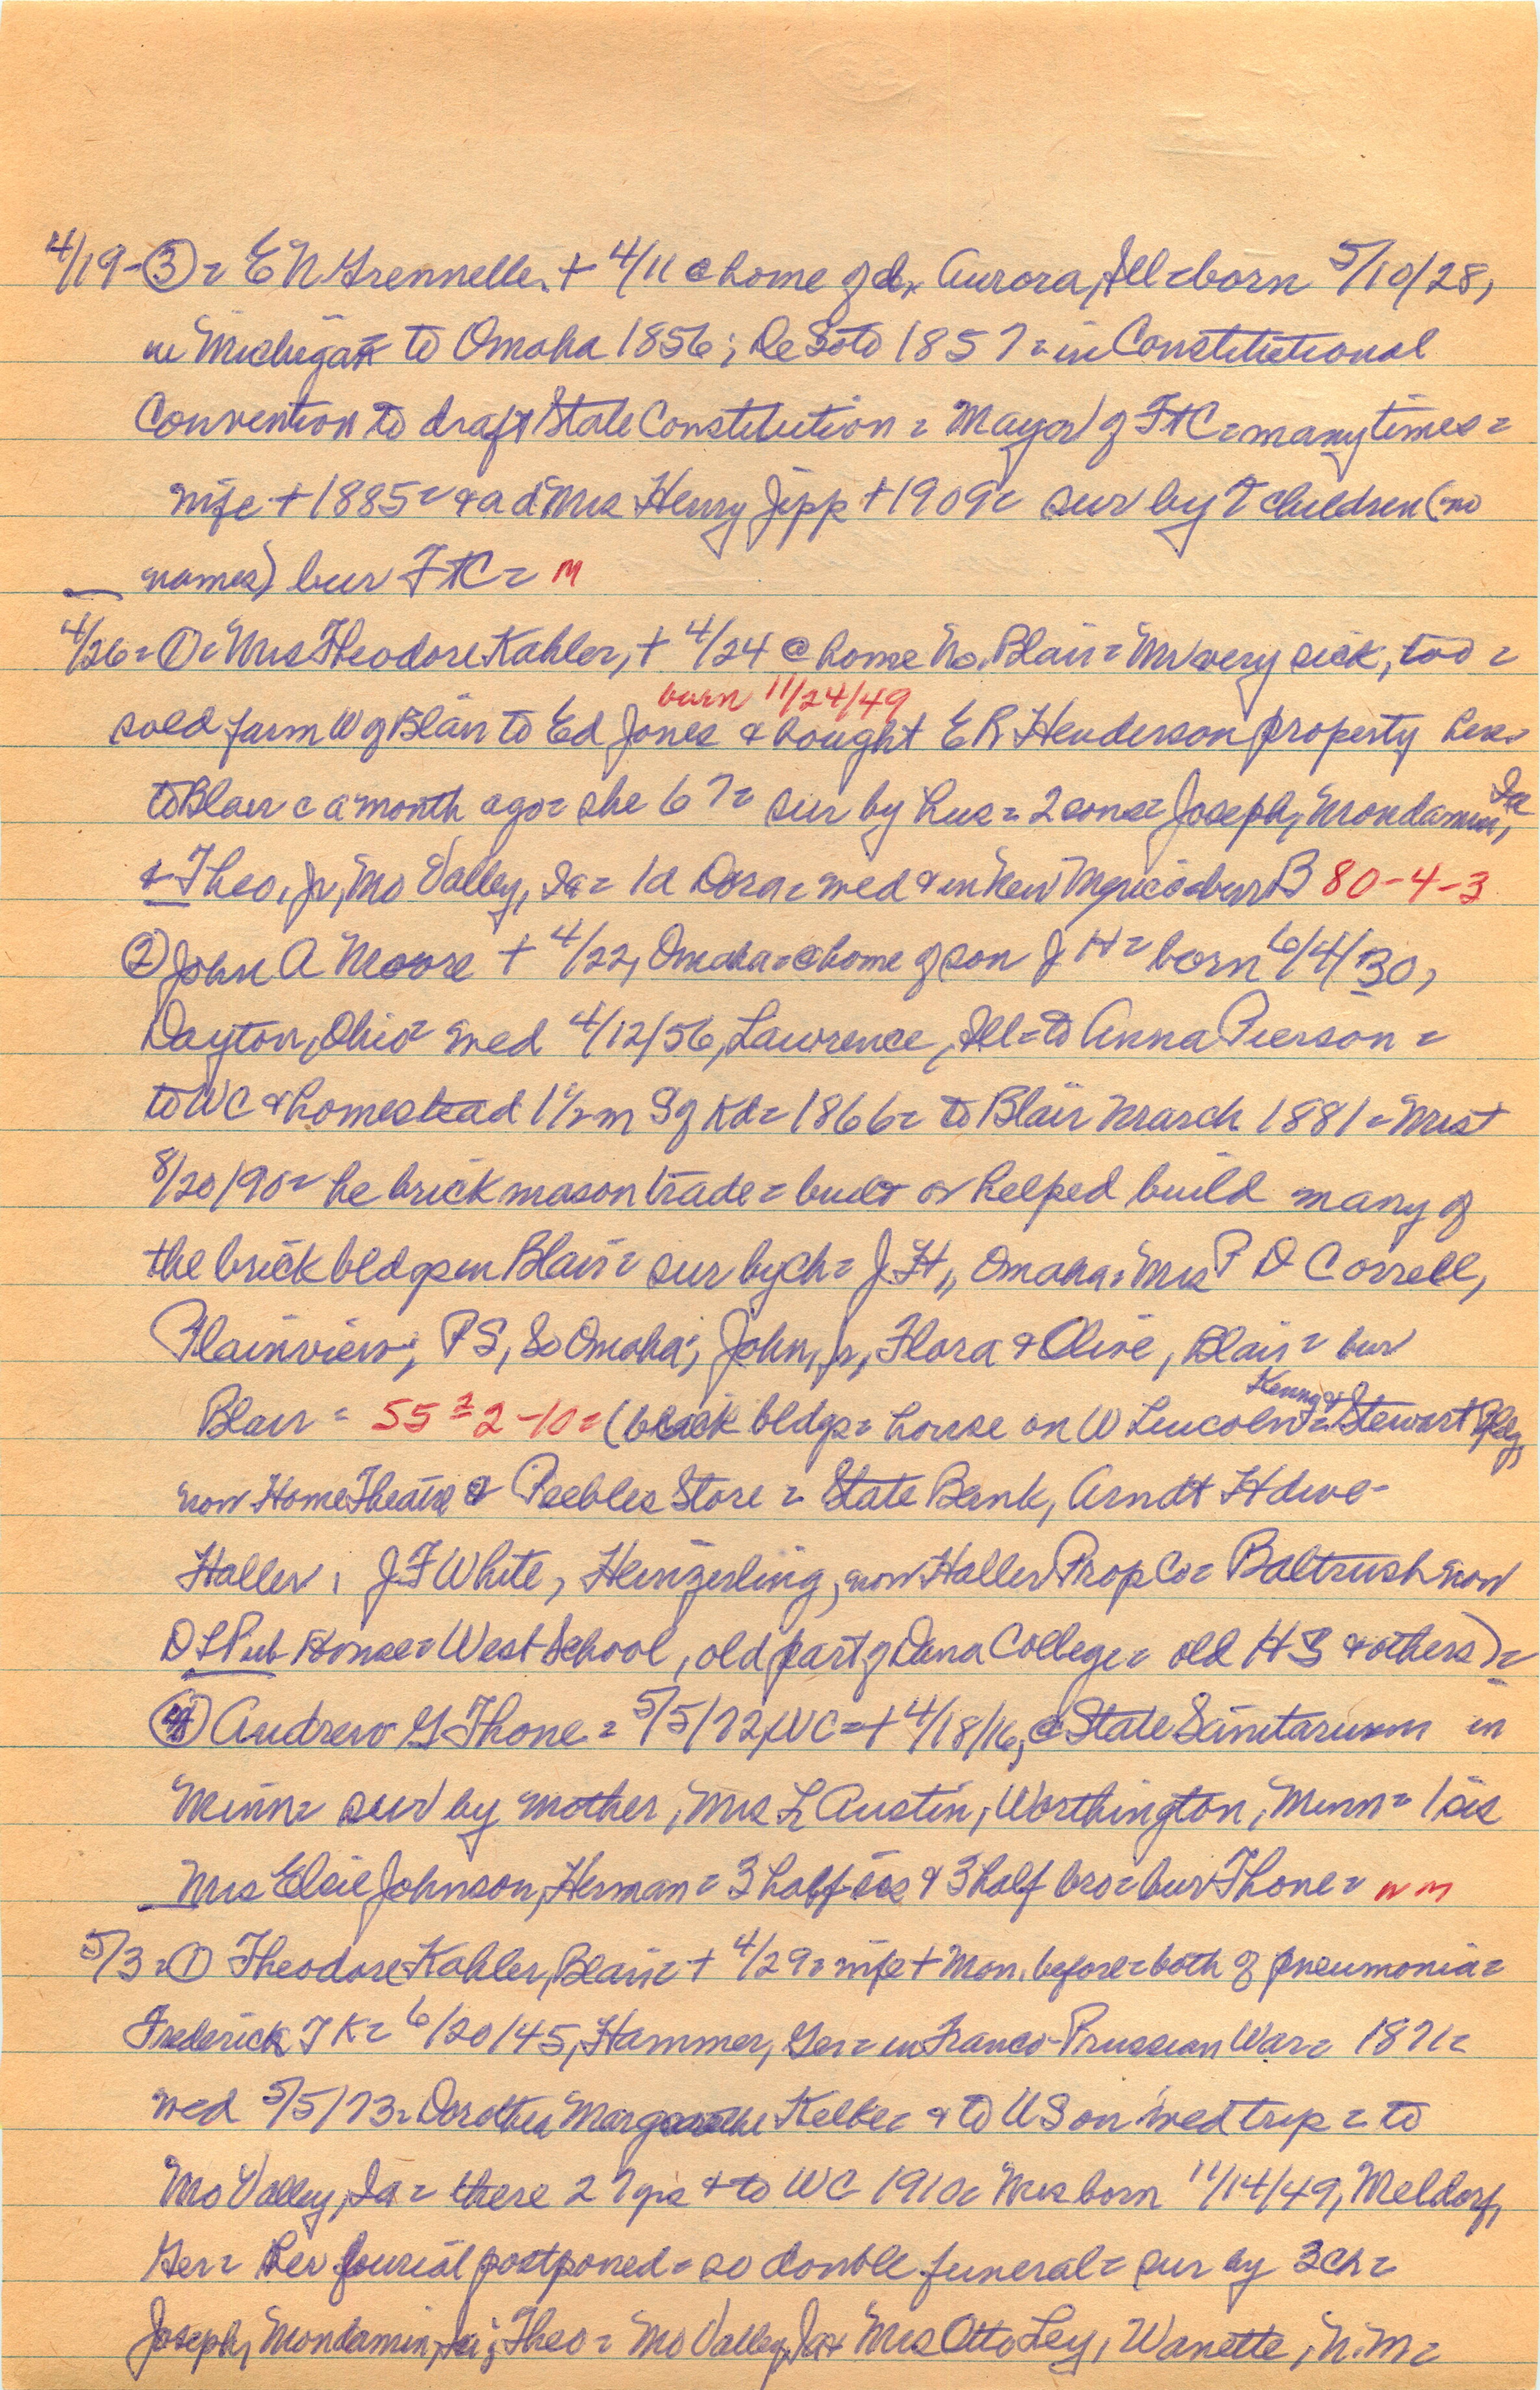 4/19-③= E N Grennelle, + 4/11 @ home of d, Aurora, Ill = born 5/10/28,
in Michigan to Omaha 1856; DeSoto 1857 = in Constitutional
Convention to draft State Constitution = Mayor of FtC = many times =
wife + 1885 = & a d Mrs Henry Jipp + 1909 = sur by 7 children (no
names) bur FtC = M
4/26 = ① = Mrs Theodore Kahler, + 4/24 @ home No. Blair = Mr very sick, too =
born 11/24/49
sold farm W of Blair to Ed Jones & bought E R Henderson property here
to Blair c a month ago = she 67 = sur by hus = 2 sons = Joseph, Mondamin, Ia
& Theo, jr, Mo Valley, Ia = 1 d Dora = wed & in New Mexico = bur B 80-4-3
② John A Moore + 4/22, Omaha = @ home of son J H = born 6/4/30,
Dayton, Ohio = wed 4/12/56, Lawrence, Ill = to Anna Pierson =
to WC & homestead 1 1/2 m S of Kd = 1866 = to Blair March 1881 = Mrs +
8/20/90 = he brick mason trade = built or helped build many of
the brick bldgs in Blair = sur by ch = J. H,, Omaha; Mrs P D Correll,
Plainview; P S, So Omaha; John, jr, Flora & Olive, Blair = bur
Blair = 55=2-10 = (brick bldgs = house on W Lincoln = Stewart Bldg,
now Home Theatre & Peebles Store = State Bank, Arndt Hdwe-
Haller, J F White, Heinzerling, now Haller Prop Co = Baltrush now
D L Pub House = West School, old part of Dana College = old H S & others) =
④ Andrew G Thone = 5/5/72, WC = + 4/18/16, @ State Sanitarium in
Minn = sur by mother, Mrs L Austin, Worthington, Minn = 1 sis
Mrs Elsie Johnson, Herman = 3 half-sis & 3 half bro = bur Thone = N M
5/3 = ① Theodore Kahler, Blair = + 4/29 = wife + Mon. before = both of pneumonia =
Frederick T K = 6/20/45, Hammer, Ger = in Franco-Prussian War = 1871 =
wed 5/5/73 = Dorothea Margarethe = & to US on wed trip = to
Mo Valley, Ia = there 27 yrs & to WC 1910 = Mrs born 11/14/49, Meldorf,
Ger = her burial postponed = so double funeral = sur by 3 ch =
Joseph, Mondamin, Ia; Theo = Mo Valley, Ia & Mrs Otto Ley, Wanette, N. M =